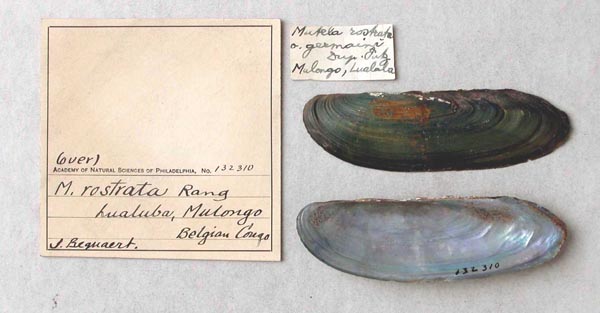 (over)
ACADEMY OF NATURAL SCIENCES OF PHILADELPHIA, NO. 132310
M. rostrata Rang
Lualuba, Mulongo
Belgian Congo
J. Bequaert.
Mutela rostrata
v. germaini
Dup. Putz
Mulongo, Lualaba
132310